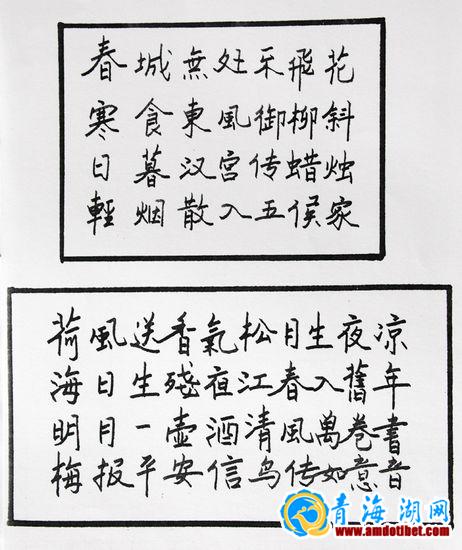 春城無处不飛花
寒食東風御柳斜
日暮汉宫传蜡烛
輕烟散入五侯家
荷風送香氣松月生夜凉
海日生殘夜江春入舊年
明月一壶酒清風萬卷書
梅报平安信鸟传如意音
青海湖网
www.amdotibet.com